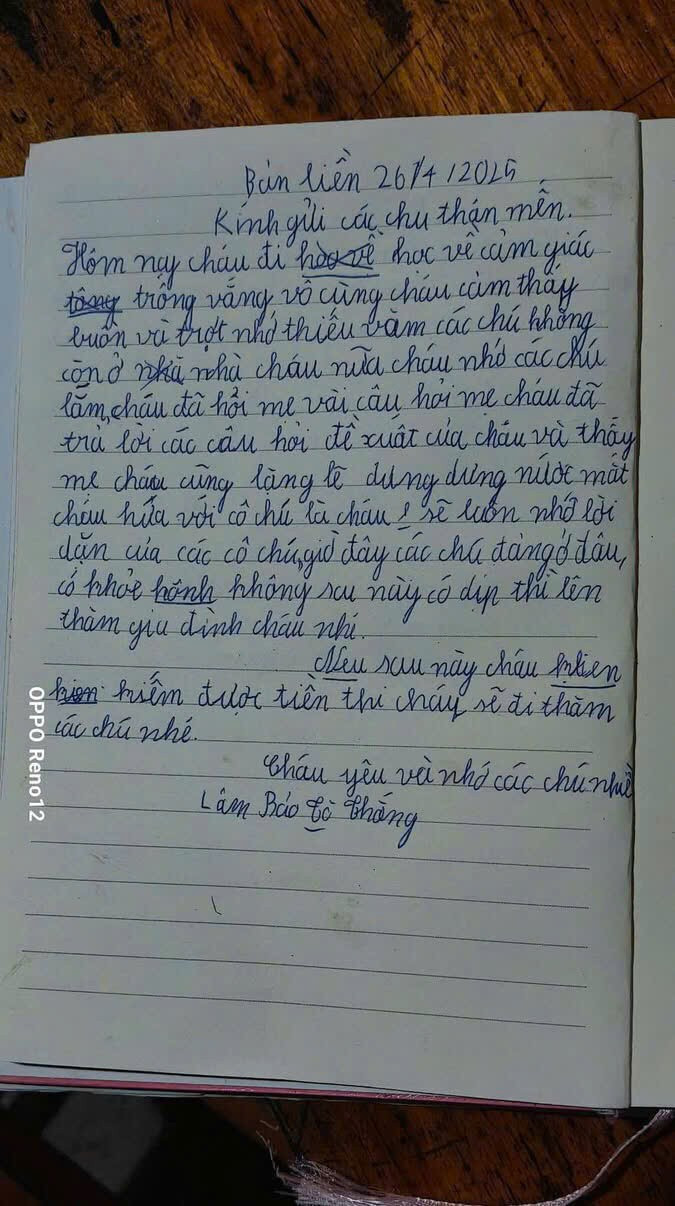 Bản liền 26/4/2025
Kính gửi các chu thận mến.
Hôm nay cháu đi học về học về cảm giác
tông trông vắng vô cùng cháu cảm thấy
buồn và trợt nhớ thiếu vằm các chú không
còn ở nhà nhà cháu nữa cháu nhớ các chú
lắm, cháu đã hỏi mẹ vài câu hỏi mẹ cháu đã
trả lời các câu hỏi đề xuất của cháu và thấy
mẹ cháu cũng lặng lẽ dưng dưng nước mắt
cháu hứa với cô chú là cháu sẽ luôn nhớ lời
dặn của các cô chú, giờ đây các chú đang ở đâu,
có khỏe hônh không sau này có dịp thì lên
thăm gia đình cháu nhí.
Nếu sau này cháu
kiếm được tiền thì cháu sẽ đi thăm
các chú nhé.
Cháu yêu và nhớ các chú nhiề
Lâm Bảo Cò Thắng
OPPO Reno12